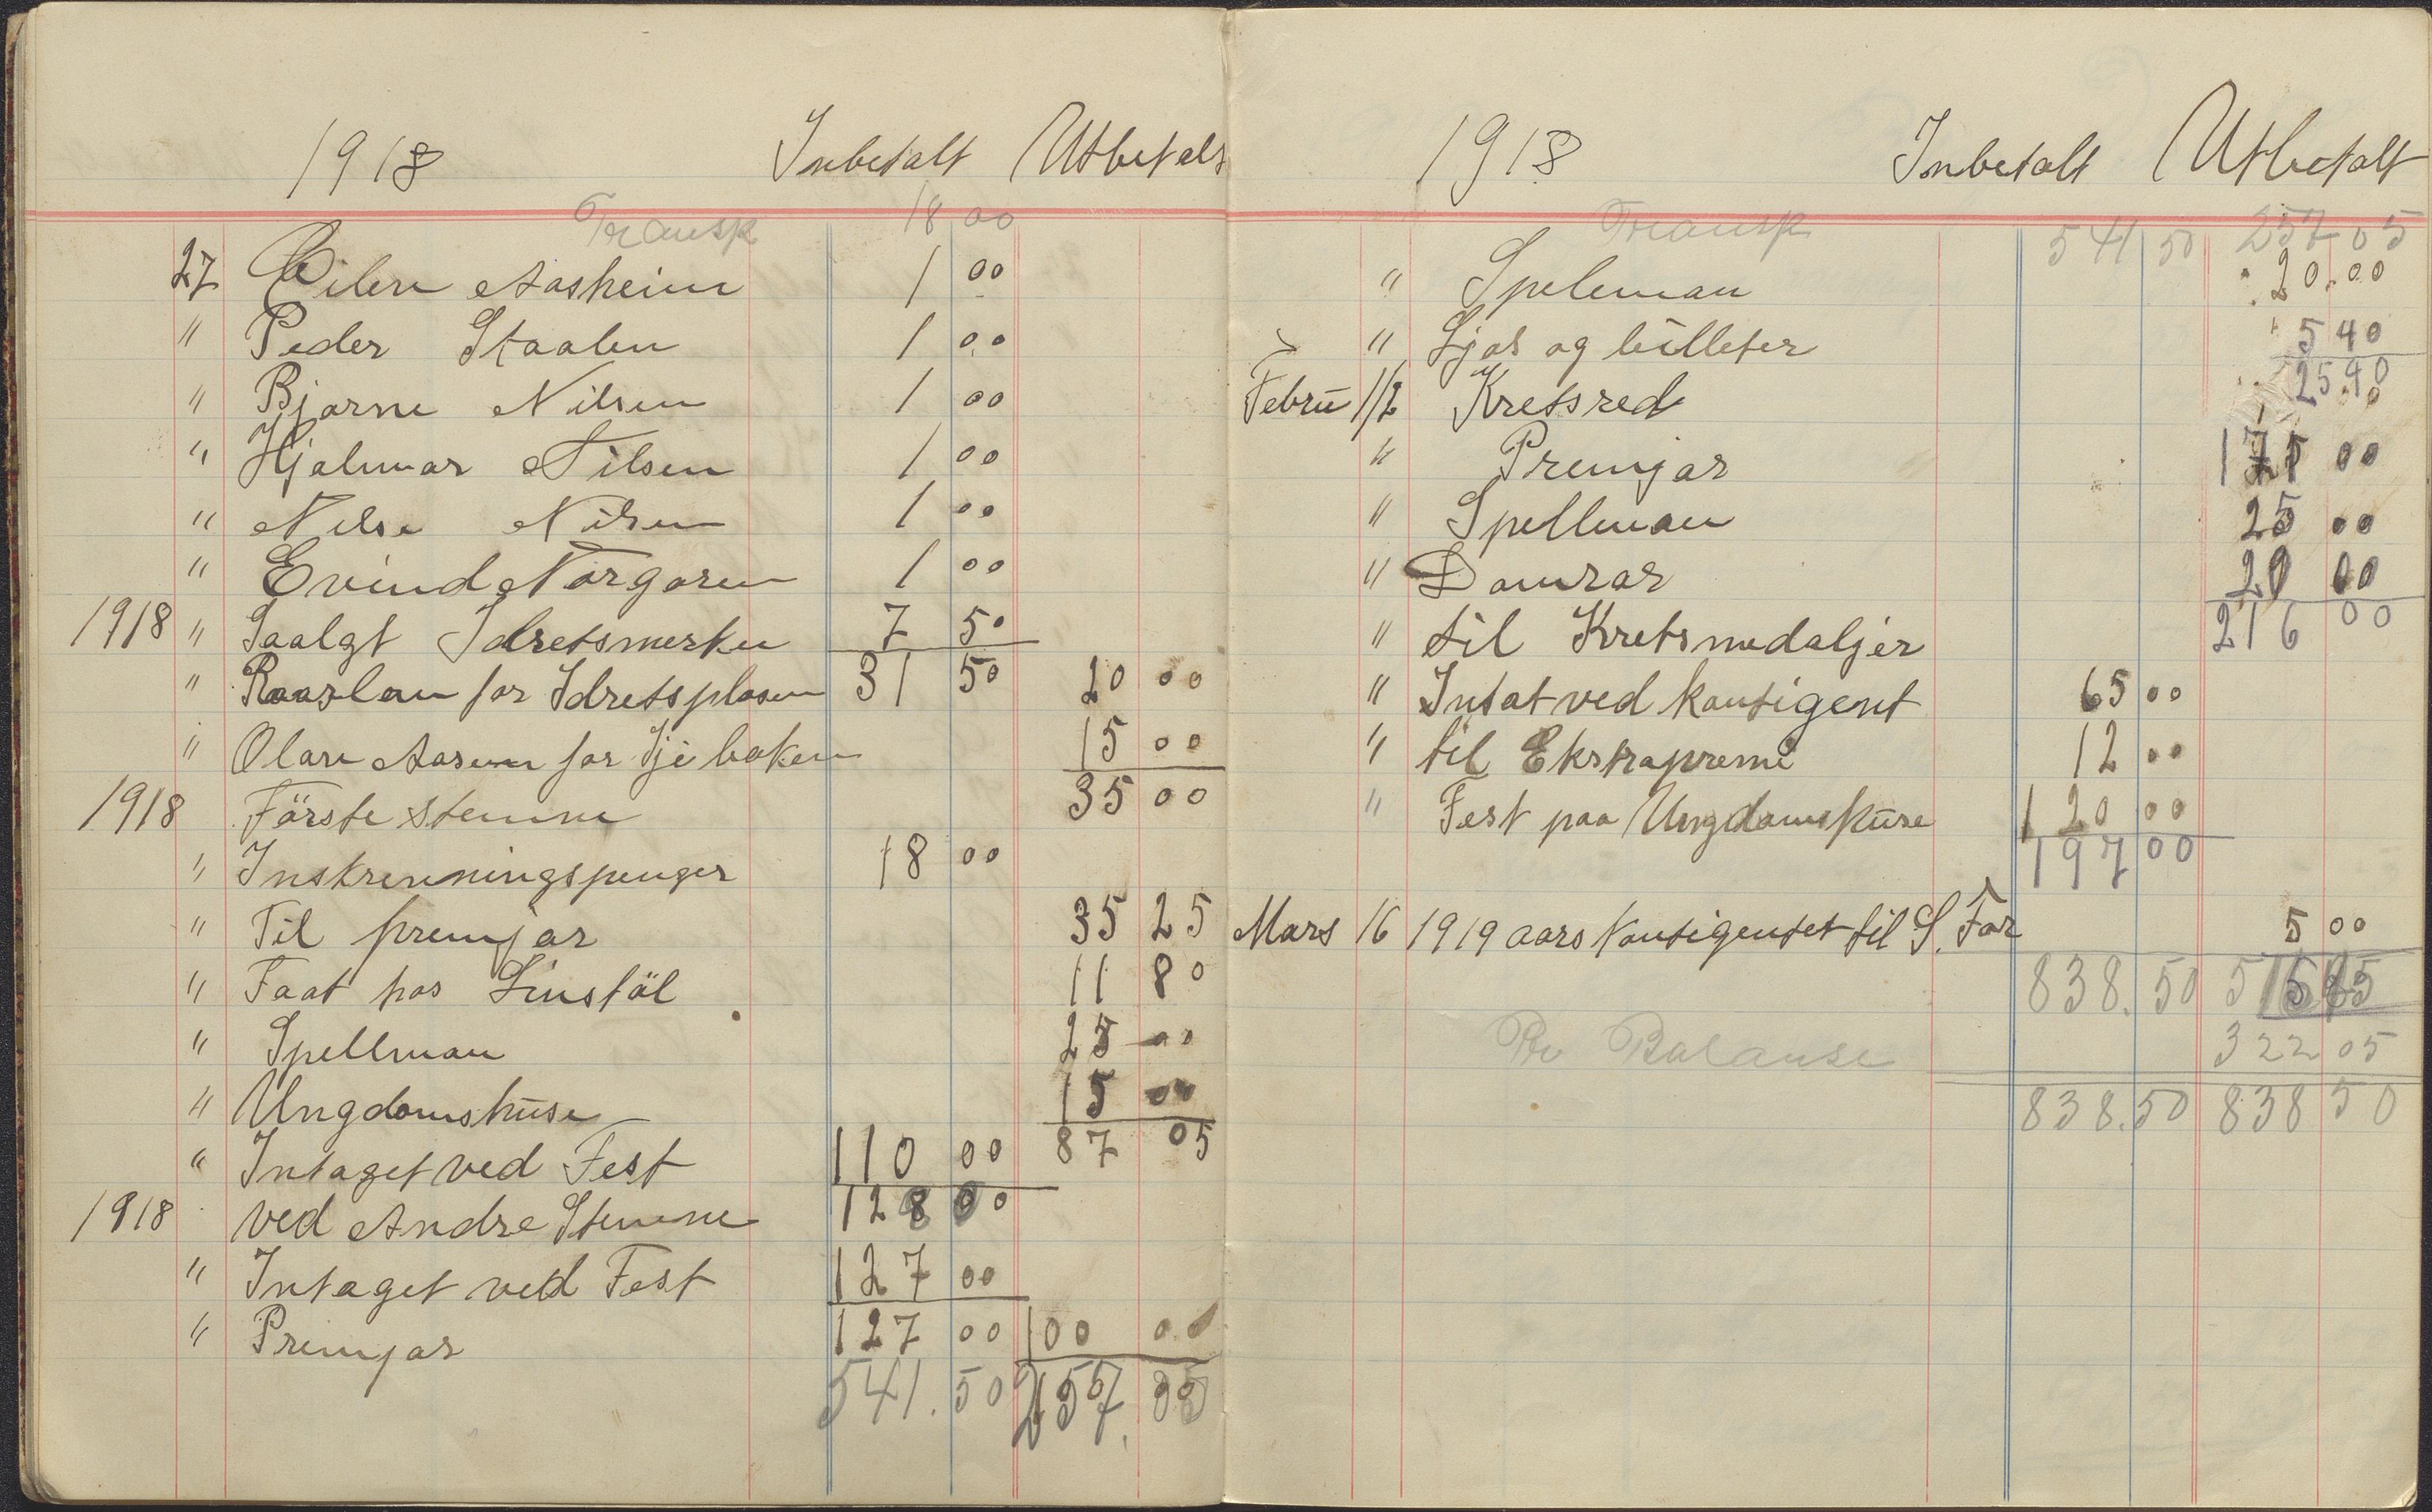 1918 Inbetalt Utbetalt
Transp 18 00
27 Eilen Aasheim 1 00
" Peder Staalen 1 00
" Bjarne Nilsen 1 00
" Hjalmar Nilsen 1 00
" Nilse Nilsen 1 00
" Evind Norgaren 1 00
1918 " Saalgt Idretsmerker 7 50
" for Idretsplasen 31 50 20 00
" Olav Aasen for boken 15 00
1918 Förste stemne 35 00
" Inskrenningspenger 18 00
" Til premjar 35 25
" Faat hos 11 80
" Spellman 25 00
" Ungdomshuse 15 00
" Intaget ved Fest 110 00 87 05
1918 ved Andre Stemne 128 00
" Intaget ved Fest 127 00
" Premjar 127 00 100 00
541.50 257.05
1918 Inbetalt Utbetalt
Transp 541 50 257 05
" Speleman 20.00
" Ljos og billeter 5 40
Febru 1/2 Kretsred 25.40
" Premjar 00
" Spellman 25 00
" Domrar 20 00
" til Kretsmedaljer 216 00
" Intat ved kontigent 65 00
" til Ekstrapremi 12 00
" Fest paa Ungdomshuse 120 00
197 00
Mars 16 1919 aars Kontigentet til S. For 5 00
838.50
Pr Balanse 322 05
838.50 838 50